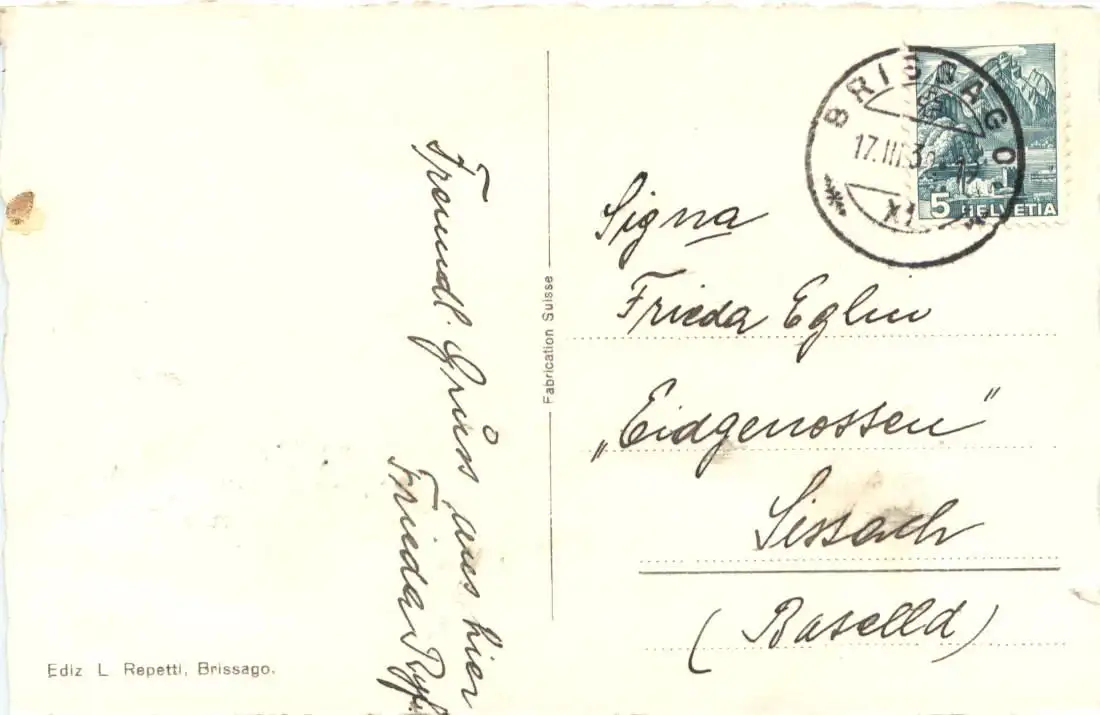 Freundl. Grüss aus hier
Frieda
Ediz L. Repetti, Brissago.
Fabrication Suisse
BRISSAGO
17.III.3
XI
5 HELVETIA
Signa
Frieda Eglin
„Eidgenossen"
Sissach
(Baselld)